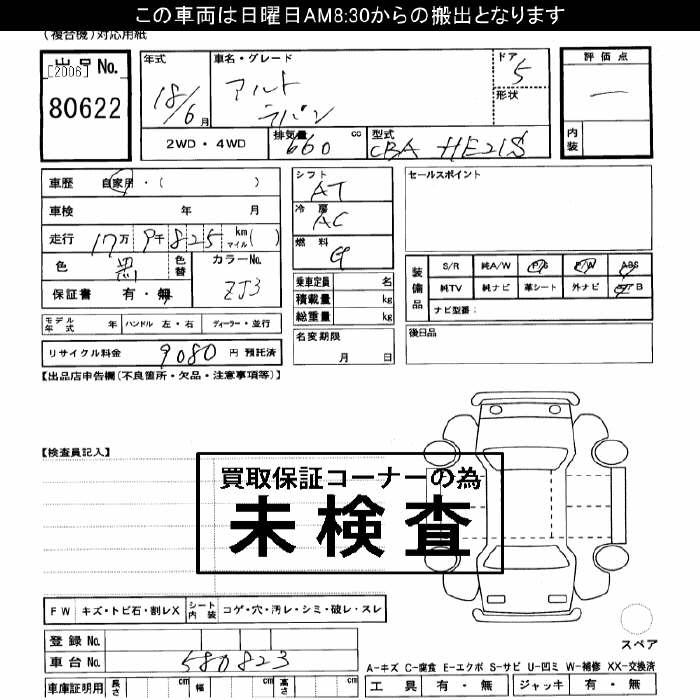 この車両は日曜日AM8:30からの搬出となります
(複合機)対応用紙
出品No.
[2006]
80622
年式
18/6月
車名・グレード
アルト
ラパン
ドア
5
形状
評価点
―
内装
2WD・4WD
排気量 660 cc
型式 CBA HE21S
車歴 自家用・( )
車検 年 月
走行 17万9千825 km マイル( )
色 黒 色替
カラーNo. ZJ3
保証書 有・無
シフト AT
冷房 AC
燃料 G
乗車定員 名
積載量 kg
総重量 kg
セールスポイント
装備品
S/R 純A/W P/S P/W ABS
純TV 純ナビ 革シート 外ナビ エアB
ナビ型番:
モデル年式 年 ハンドル 左・右 ディーラー・並行
リサイクル料金 9080 円 預託済
名変期限 月 日
後日品
【出品店申告欄(不良箇所・欠品・注意事項等)】
【検査員記入】
買取保証コーナーの為
未検査
FW キズ・トビ石・割レX シート内装 コゲ・穴・汚レ・シミ・破レ・スレ
登録No.
車台No. 580823
車庫証明用 長さ cm 幅 cm 高さ cm
スペア
A-キズ C-腐食 E-エクボ S-サビ U-凹ミ W-補修 XX-交換済
工具 有・無 ジャッキ 有・無